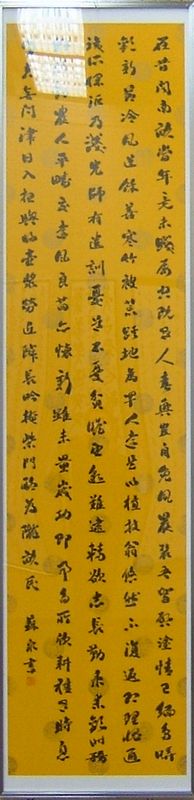 在昔聞南畝當年竟未踐屢空既有人春興豈自免夙晨裝吾駕啟塗情已緬鳥哢
歡新節冷風送餘善寒竹被荒蹊地為罕人遠是以植杖翁悠然不復返即理愧通
識所保詎乃淺先師有遺訓憂道不憂貧瞻望邈難逮轉欲志長勤秉耒歡時務
解顏勸農人平疇交遠風良苗亦懷新雖未量歲功即事多所欣耕種有時息
行者無問津日入相與歸壺漿勞近鄰長吟掩柴門聊為隴畝民
書